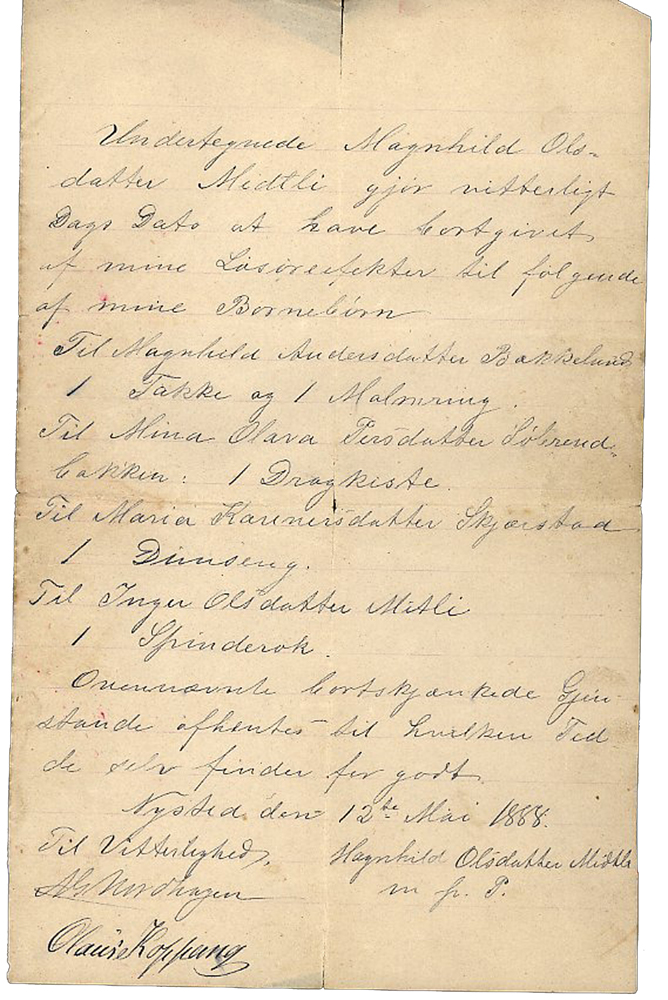 Undertegnede Magnhild Ols-
datter Midtli gjör vitterligt
Dags Dato at have bortgivet
af mine Løsöreefekter til følgende
af mine Bornebörn
Til Magnhild Andersdatter Bakkelund
1 Takke og 1 Malmring.
Til Mina Olava Persdatter Sölvrend-
bakken: 1 Dragkiste.
Til Maria Karenersdatter Skjærstad
1 Dunseng.
Til Inger Olsdatter Mitli
1 Spinderok.
Ovennævnte bortskjænkede Gjen-
stande afhentes til hvilken Tid
de selv finder for godt.
Nysted den 12te Mai 1888.
Til Vitterlighed, Magnhild Olsdatter Midtli
Nordhagen m. p. P.
Olaus Koppang